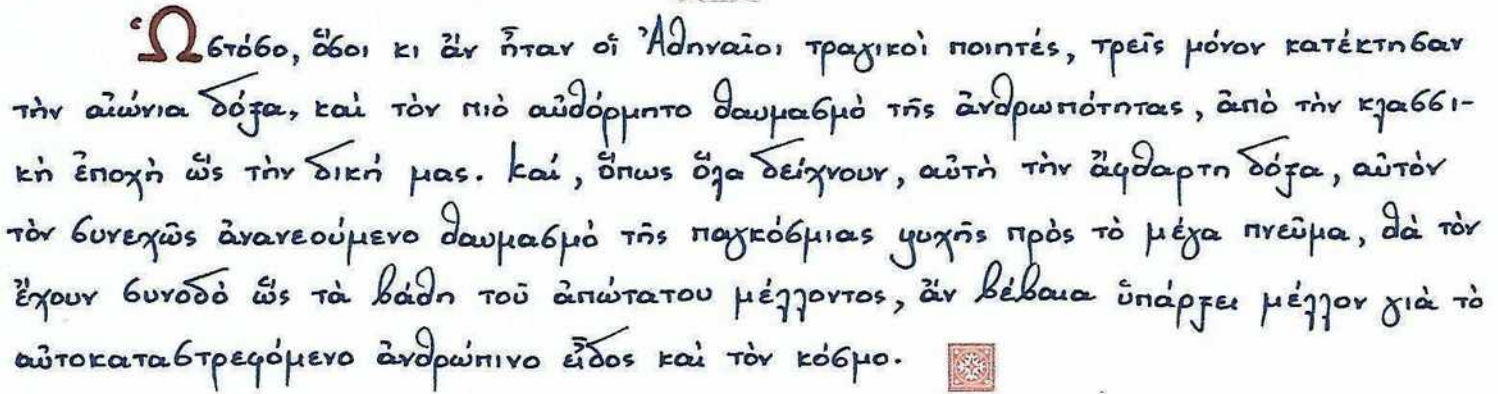 Ὡστόσο, ὅσοι κι ἂν ἦταν οἱ Ἀθηναῖοι τραγικοὶ ποιητές, τρεῖς μόνον κατέκτησαν
τὴν αἰώνια δόξα, καὶ τὸν πιὸ αὐθόρμητο θαυμασμὸ τῆς ἀνθρωπότητας, ἀπὸ τὴν κλασσι-
κὴ ἐποχὴ ὣς τὴν δική μας. Καί, ὅπως ὅλα δείχνουν, αὐτὴ τὴν ἄφθαρτη δόξα, αὐτόν
τὸν συνεχῶς ἀνανεούμενο θαυμασμὸ τῆς παγκόσμιας ψυχῆς πρὸς τὸ μέγα πνεῦμα, θὰ τὸν
ἔχουν συνοδὸ ὣς τὰ βάθη τοῦ ἀπώτατου μέλλοντος, ἂν βέβαια ὑπάρξει μέλλον γιὰ τὸ
αὐτοκαταστρεφόμενο ἀνθρώπινο εἶδος καὶ τὸν κόσμο.